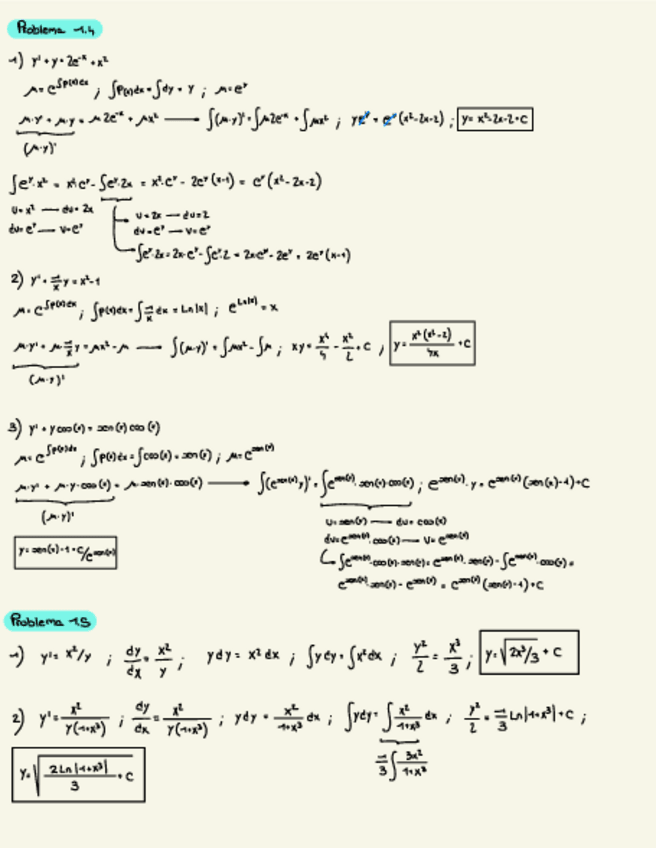 Problema 1.4
1) y' + y = 2e^-x + x²
μ = e^∫p(x)dx ; ∫p(x)dx = ∫dy = y ; μ = e^y
μ·y' + μ·y = μ2e^-x + μx² ⟶ ∫(μ·y)' = ∫μ2e^-x + ∫μx² ; ye^y = e^y (x²-2x-2) ; y = x²-2x-2+C
(μ·y)'
∫e^y·x² = x²·e^y - ∫e^y·2x = x²·e^y - 2e^y(x-1) = e^y(x²-2x-2)
u = x² — du = 2x
dv = e^y — v = e^y
u = 2x — du = 2
dv = e^y — v = e^y
∫e^y·2x = 2x·e^y - ∫e^y·2 = 2x·e^y - 2e^y = 2e^y(x-1)
2) y' + 1/x y = x²-1
μ = e^∫p(x)dx ; ∫p(x)dx = ∫1/x dx = Ln|x| ; e^Ln|x| = x
μ·y' + μ·1/x y = μx² - μ ⟶ ∫(μ·y)' = ∫μx² - ∫μ ; xy = x⁴/4 - x²/2 + C ; y = x²(x²-2)/4x + C
(μ·y)'
3) y' + y cos(x) = sen(x) cos(x)
μ = e^∫p(x)dx ; ∫p(x)dx = ∫cos(x) = sen(x) ; μ = e^sen(x)
μ·y' + μ·y·cos(x) = μ·sen(x)·cos(x) ⟶ ∫(e^sen(x) y)' = ∫e^sen(x)·sen(x)·cos(x) ; e^sen(x)·y = e^sen(x)(sen(x)-1)+C
(μ·y)'
u = sen(x) — du = cos(x)
dv = e^sen(x)·cos(x) — v = e^sen(x)
y = sen(x)-1+C/e^sen(x)
∫e^sen(x)·cos(x)·sen(x) = e^sen(x)·sen(x) - ∫e^sen(x)·cos(x) =
e^sen(x)·sen(x) - e^sen(x) = e^sen(x)(sen(x)-1)+C
Problema 1.5
1) y' = x²/y ; dy/dx = x²/y ; ydy = x²dx ; ∫ydy = ∫x²dx ; y²/2 = x³/3 ; y = √2x³/3 + C
2) y' = x²/y(1+x³) ; dy/dx = x²/y(1+x³) ; ydy = x²/1+x³ dx ; ∫ydy = ∫x²/1+x³ dx ; y²/2 = 1/3 Ln|1+x³| + C ;
1/3 ∫3x²/1+x³
y = √(2Ln|1+x³|/3 + C)